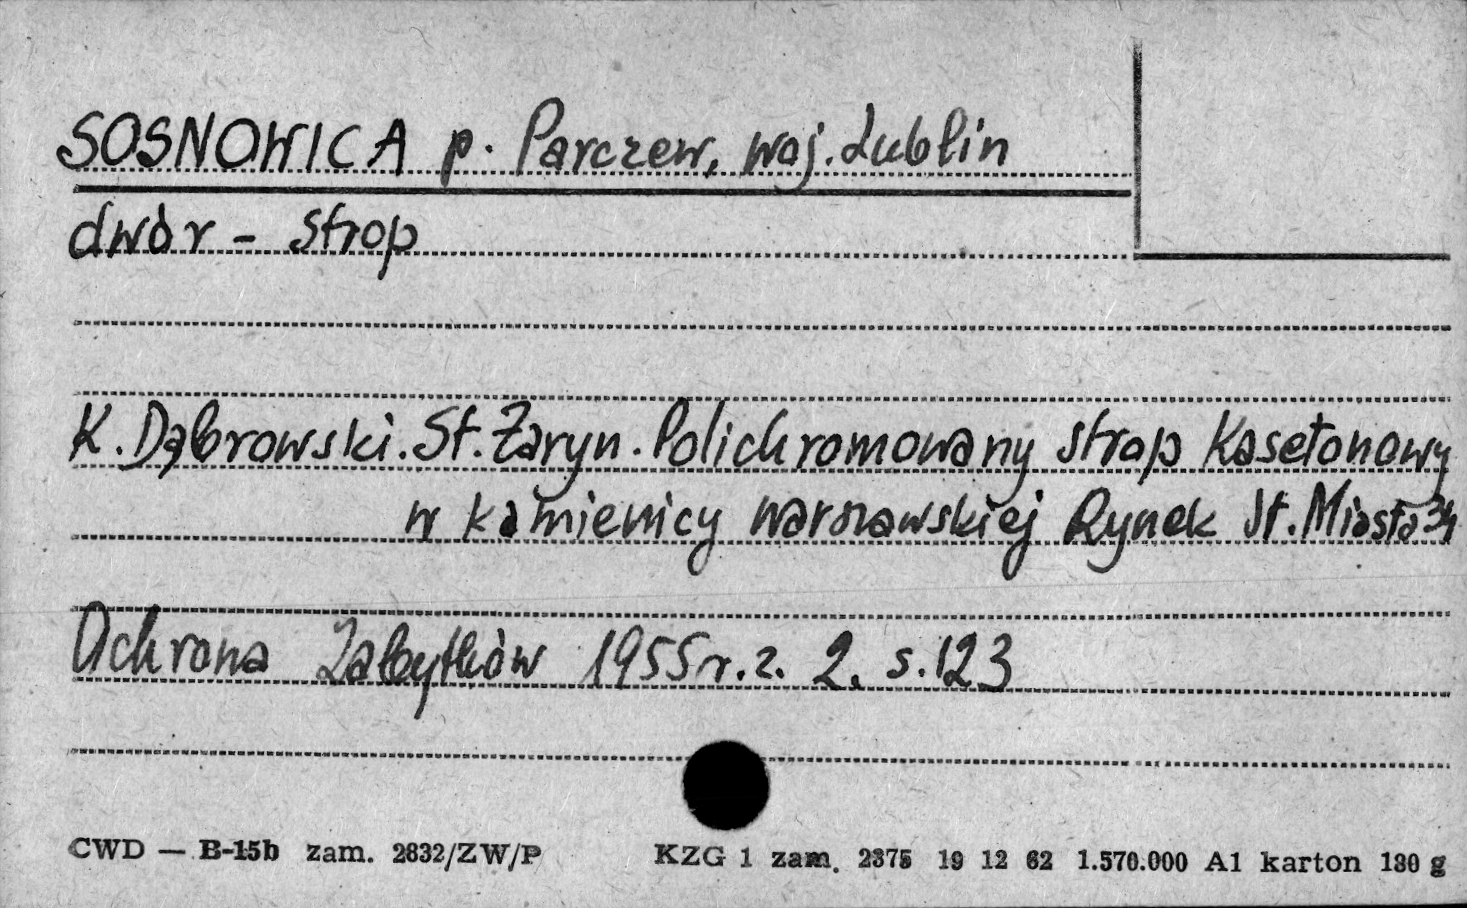 SOSNOWICA p. Parczew, woj. Lublin
dwór - strop
K. Dąbrowski. St. Żaryn. Polichromowany strop kasetonowy
w kamienicy warszawskiej Rynek St. Miasta 34
Ochrona Zabytków 1955 r. z. 2. s. 123
CWD — B-15b zam. 2832/ZW/P KZG 1 zam. 2375 19 12 62 1.570.000 A1 karton 180 g